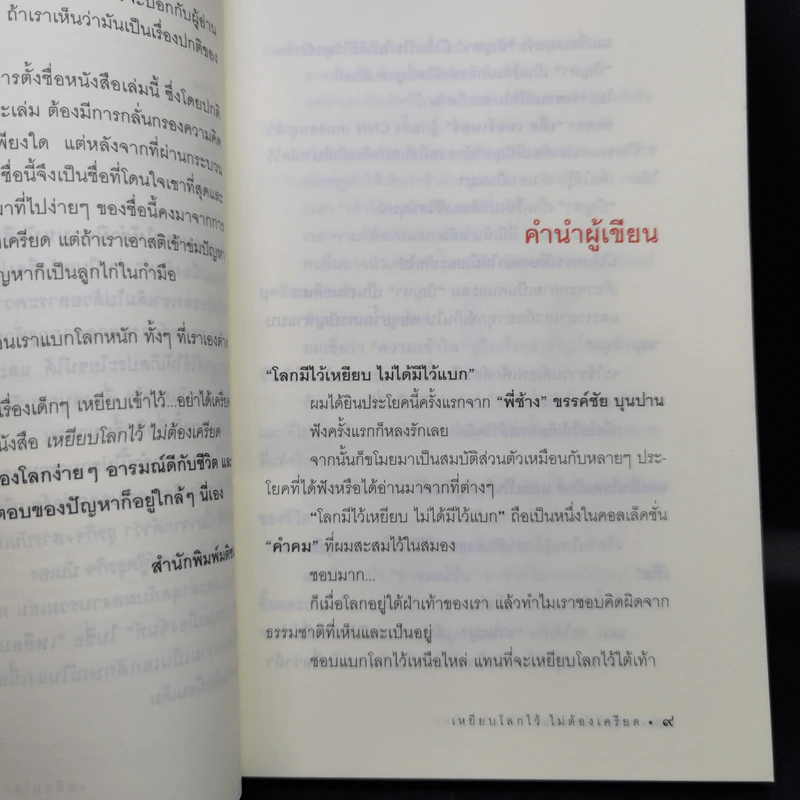 จะบอกกับผู้อ่าน
ถ้าเราเห็นว่ามันเป็นเรื่องปกติของ
การตั้งชื่อหนังสือเล่มนี้ ซึ่งโดยปกติ
ละเล่ม ต้องมีการกลั่นกรองความคิด
เพียงใด แต่หลังจากที่ผ่านกระบวน
ชื่อนี้จึงเป็นชื่อที่โดนใจเขาที่สุดและ
มาที่ไปง่ายๆ ของชื่อนี้คงมาจากการ
เครียด แต่ถ้าเราเอาสติเข้าข่มปัญหา
ปัญหาก็เป็นลูกไก่ในกำมือ
เราแบกโลกหนัก ทั้งๆ ที่เราเองต่าง
เรื่องเด็กๆ เหยียบเข้าไว้...อย่าได้เครียด
หนังสือ เหยียบโลกไว้ ไม่ต้องเครียด
มองโลกง่ายๆ อารมณ์ดีกับชีวิต และ
ตอบของปัญหาก็อยู่ใกล้ๆ นี่เอง
สำนักพิมพ์มติชน
คำนำผู้เขียน
“โลกมีไว้เหยียบ ไม่ได้มีไว้แบก”
ผมได้ยินประโยคนี้ครั้งแรกจาก “พี่ช้าง” ขรรค์ชัย บุนปาน
ฟังครั้งแรกก็หลงรักเลย
จากนั้นก็ขโมยมาเป็นสมบัติส่วนตัวเหมือนกับหลายๆ ประ-
โยคที่ได้ฟังหรือได้อ่านมาจากที่ต่างๆ
“โลกมีไว้เหยียบ ไม่ได้มีไว้แบก” ถือเป็นหนึ่งในคอลเล็คชั่น
“คำคม” ที่ผมสะสมไว้ในสมอง
ชอบมาก...
ก็เมื่อโลกอยู่ใต้ฝ่าเท้าของเรา แล้วทำไมเราชอบคิดผิดจาก
ธรรมชาติที่เห็นและเป็นอยู่
ชอบแบกโลกไว้เหนือไหล่ แทนที่จะเหยียบโลกไว้ใต้เท้า
เหยียบโลกไว้ ไม่ต้องเครียด • ๙